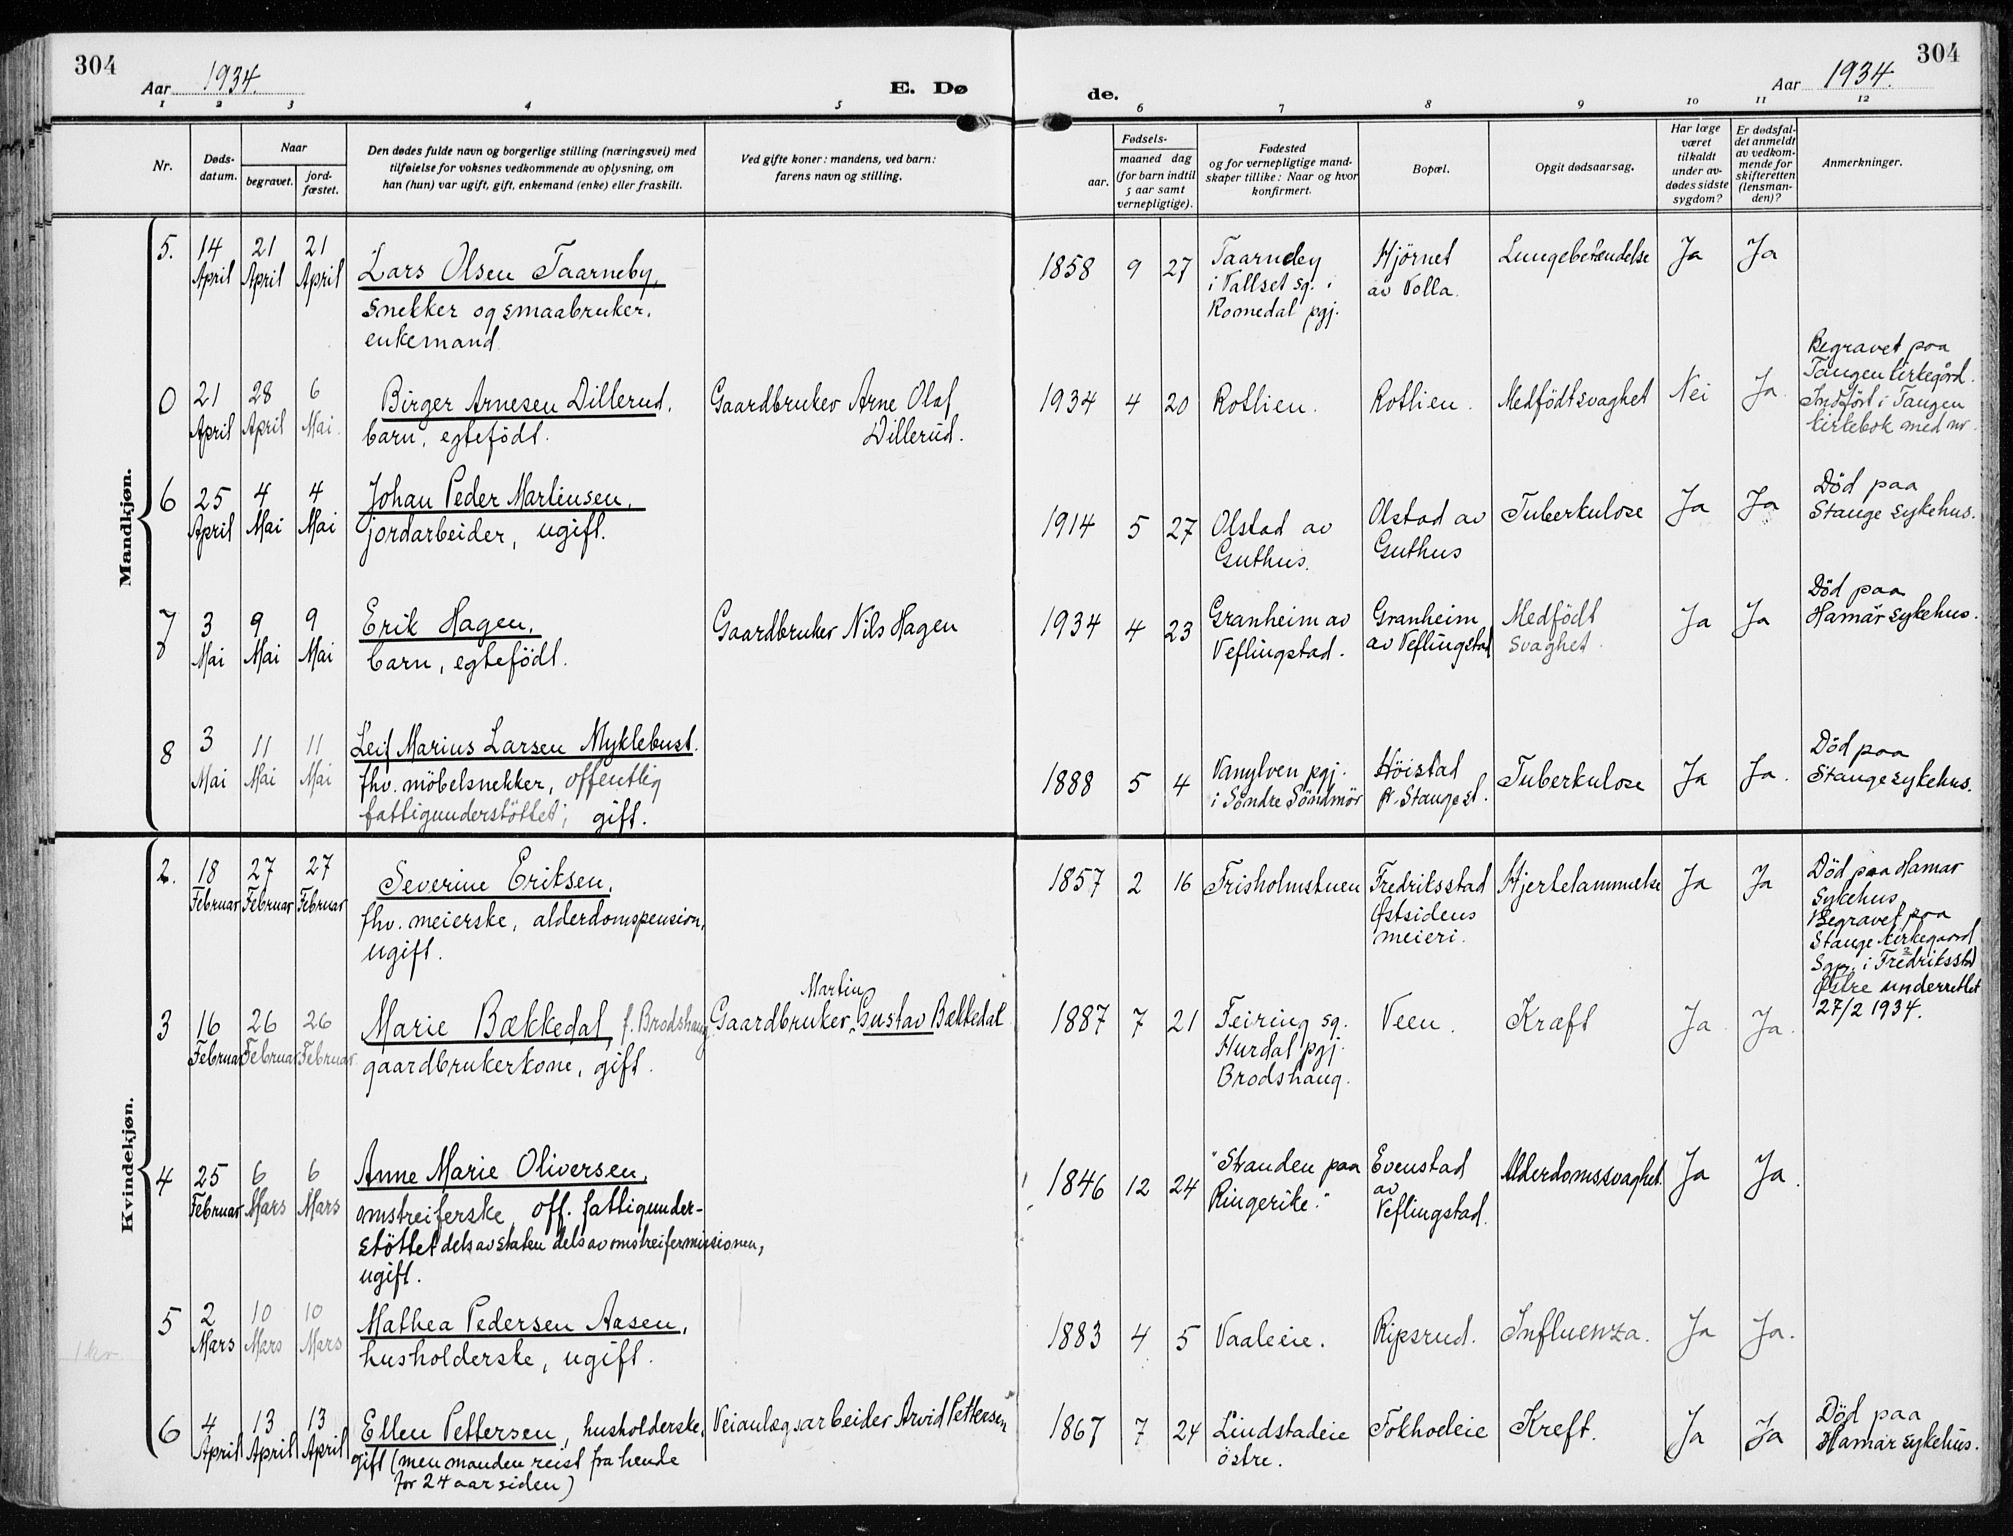 304
Aar 1934.
E. Dø
de.
Aar 1934.
304
1 2 3 4 5 6 7 8 9 10 11 12
Nr.
Døds-
datum.
Naar
begravet.
jord-
fæstet.
Den dødes fulde navn og borgerlige stilling (næringsvei) med
tilføielse for voksnes vedkommende av oplysning, om
han (hun) var ugift, gift, enkemand (enke) eller fraskilt.
Ved gifte koner: mandens, ved barn:
farens navn og stilling.
Fødsels-
aar.
maaned dag
(for barn indtil
5 aar samt
vernepligtige).
Fødested
og for vernepligtige mand-
skaper tillike: Naar og hvor
konfirmert.
Bopæl.
Opgit dødsaarsag.
Har læge
været
tilkaldt
under av-
dødes sidste
sygdom?
Er dødsfal-
det anmeldt
av vedkom-
mende for
skifteretten
(lensman-
den)?
Anmerkninger.
Mandkjøn.
5. 14 April 21 April 21 April
Lars Olsen Taarneby,
snekker og smaabruker.
enkemand
1858 9 27
Taarneby
i Vallset sg. i
Romedal pgj.
Hjørnet
av Volla.
Lungebetændelse
Ja Ja
0 21 April 28 April 6 Mai.
Birger Arnesen Dillerud,
barn, egtefödt.
Gaardbruker Arne Olaf
Dillerud.
1934 4 20
Rotlien.
Rotlien.
Medfödt svaghet
Nei Ja
Begravet paa
Tangen kirkegård.
Indfört i Tangen
kirkebok med nr.
6 25 April 4 Mai 4 Mai
Johan Peder Martinsen,
jordarbeider, ugift.
1914 5 27
Olstad av
Guthus.
Olstad av
Guthus
Tuberkulose
Ja Ja
Död paa
Stange sykehus.
7 3 Mai 9 Mai 9 Mai
Erik Hagen,
barn, egtefödt.
Gaardbruker Nils Hagen
1934 4 23
Granheim av
Veflingstad.
Granheim
av Veflingstad
Medfödt
svaghet.
Ja Ja
Död paa
Hamar sykehus.
8 3 Mai 11 Mai 11 Mai
Leif Marius Larsen Myklebust.
fhv. möbelsnekker, offentlig
fattigunderstöttet; gift.
1888 5 4
Vanylven pgj.
i Söndre Söndmör
Höistad
pr. Stange st.
Tuberkulose
Ja Ja.
Död paa
Stange sykehus.
Kvindekjøn.
2. 18 Februar 27 Februar 27 Februar
Severine Eriksen,
fhv. meierske, alderdomspension,
ugift.
1857 2 16
Frisholmstuen
Fredriksstad
Østsidens
meieri.
Hjertelammelse
Ja Ja
Död paa Hamar
sykehus,
Begravet paa
Stange kirkegaard
Spr. i Fredriksstad
Østre underrettet
27/2 1934.
3 16 Februar 26 Februar 26 Februar
Marie Bækkedal, f. Brodshaug
gaardbrukerkone, gift.
Martin
Gaardbruker Gustav Bækkedal
1887 7 21
Feiring sg.
Hurdal pgj.
Brodshaug.
Veen.
Kræft
Ja Ja.
4 25 Februar 6 Mars 6 Mars
Anne Marie Oliversen,
omstreiferske, off. fattigunder-
stöttet dels av staten dels av omstreifermissionen,
ugift.
1846 12 24
"Stranden paa
Ringerike."
Evenstad
av
Veflingstad.
Alderdomssvaghet
Ja Ja.
5 2 Mars 10 Mars 10 Mars
1 kr.
Mathea Pedersen Aasen,
husholderske, ugift.
1883 4 5
Vaaleie.
Ripsrud.
Influenza.
Ja Ja.
6 4 April 13 April 13 April
Ellen Pettersen, husholderske,
gift (men manden reist fra hende
for 24 aar siden)
Veianlægsarbeider Arvid Pettersen
1867 7 24
Lindstadeie
östre.
Tokhoeleie
Kreft.
Ja Ja
Död paa
Hamar sykehus.